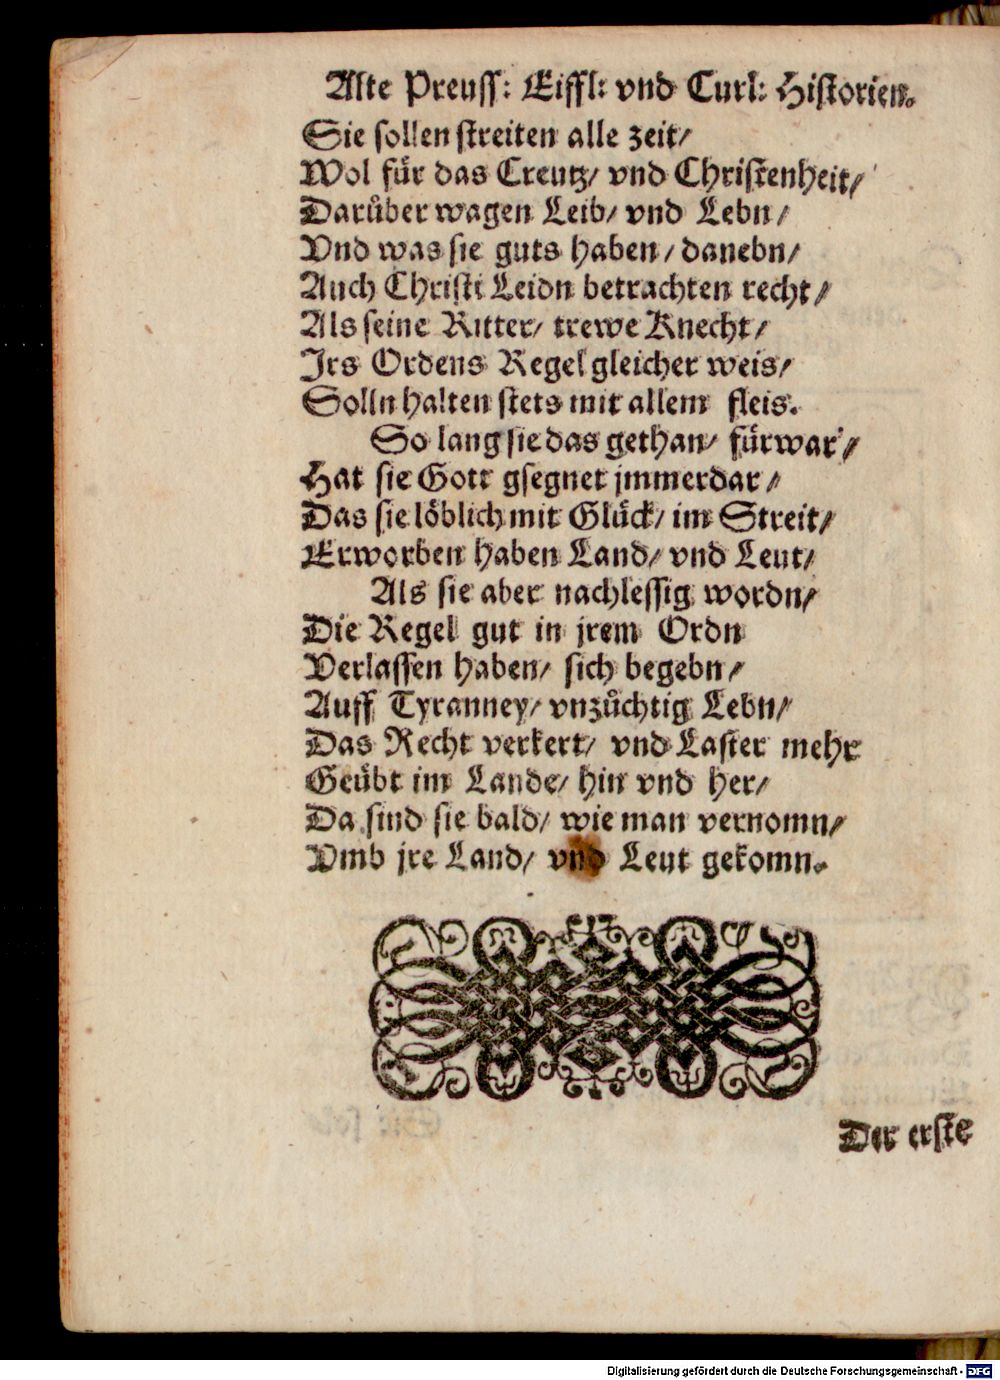 Alte Preuss: Eiffl: vnd Curl: Historien.
Sie sollen streiten alle zeit/
Wol für das Creutz/ vnd Christenheit/
Darüber wagen Leib/ vnd Lebn/
Vnd was sie guts haben/ danebn/
Auch Christi Leidn betrachten recht/
Als seine Ritter/ trewe Knecht/
Jrs Ordens Regel gleicher weis/
Solln halten stets mit allem fleis.
So lang sie das gethan/ fürwar/
Hat sie Gott gsegnet jmmerdar/
Das sie löblich mit Glück/ im Streit/
Erworben haben Land/ vnd Leut/
Als sie aber nachlessig wordn/
Die Regel gut in jrem Ordn
Verlassen haben/ sich begebn/
Auff Tyranney/ vnzüchtig Lebn/
Das Recht verkert/ vnd Laster mehr
Geübt im Lande/ hin vnd her/
Da sind sie bald/ wie man vernomn/
Vmb jre Land/ vnd Leut gekomn.
Der erste
Digitalisierung gefördert durch die Deutsche Forschungsgemeinschaft - DFG